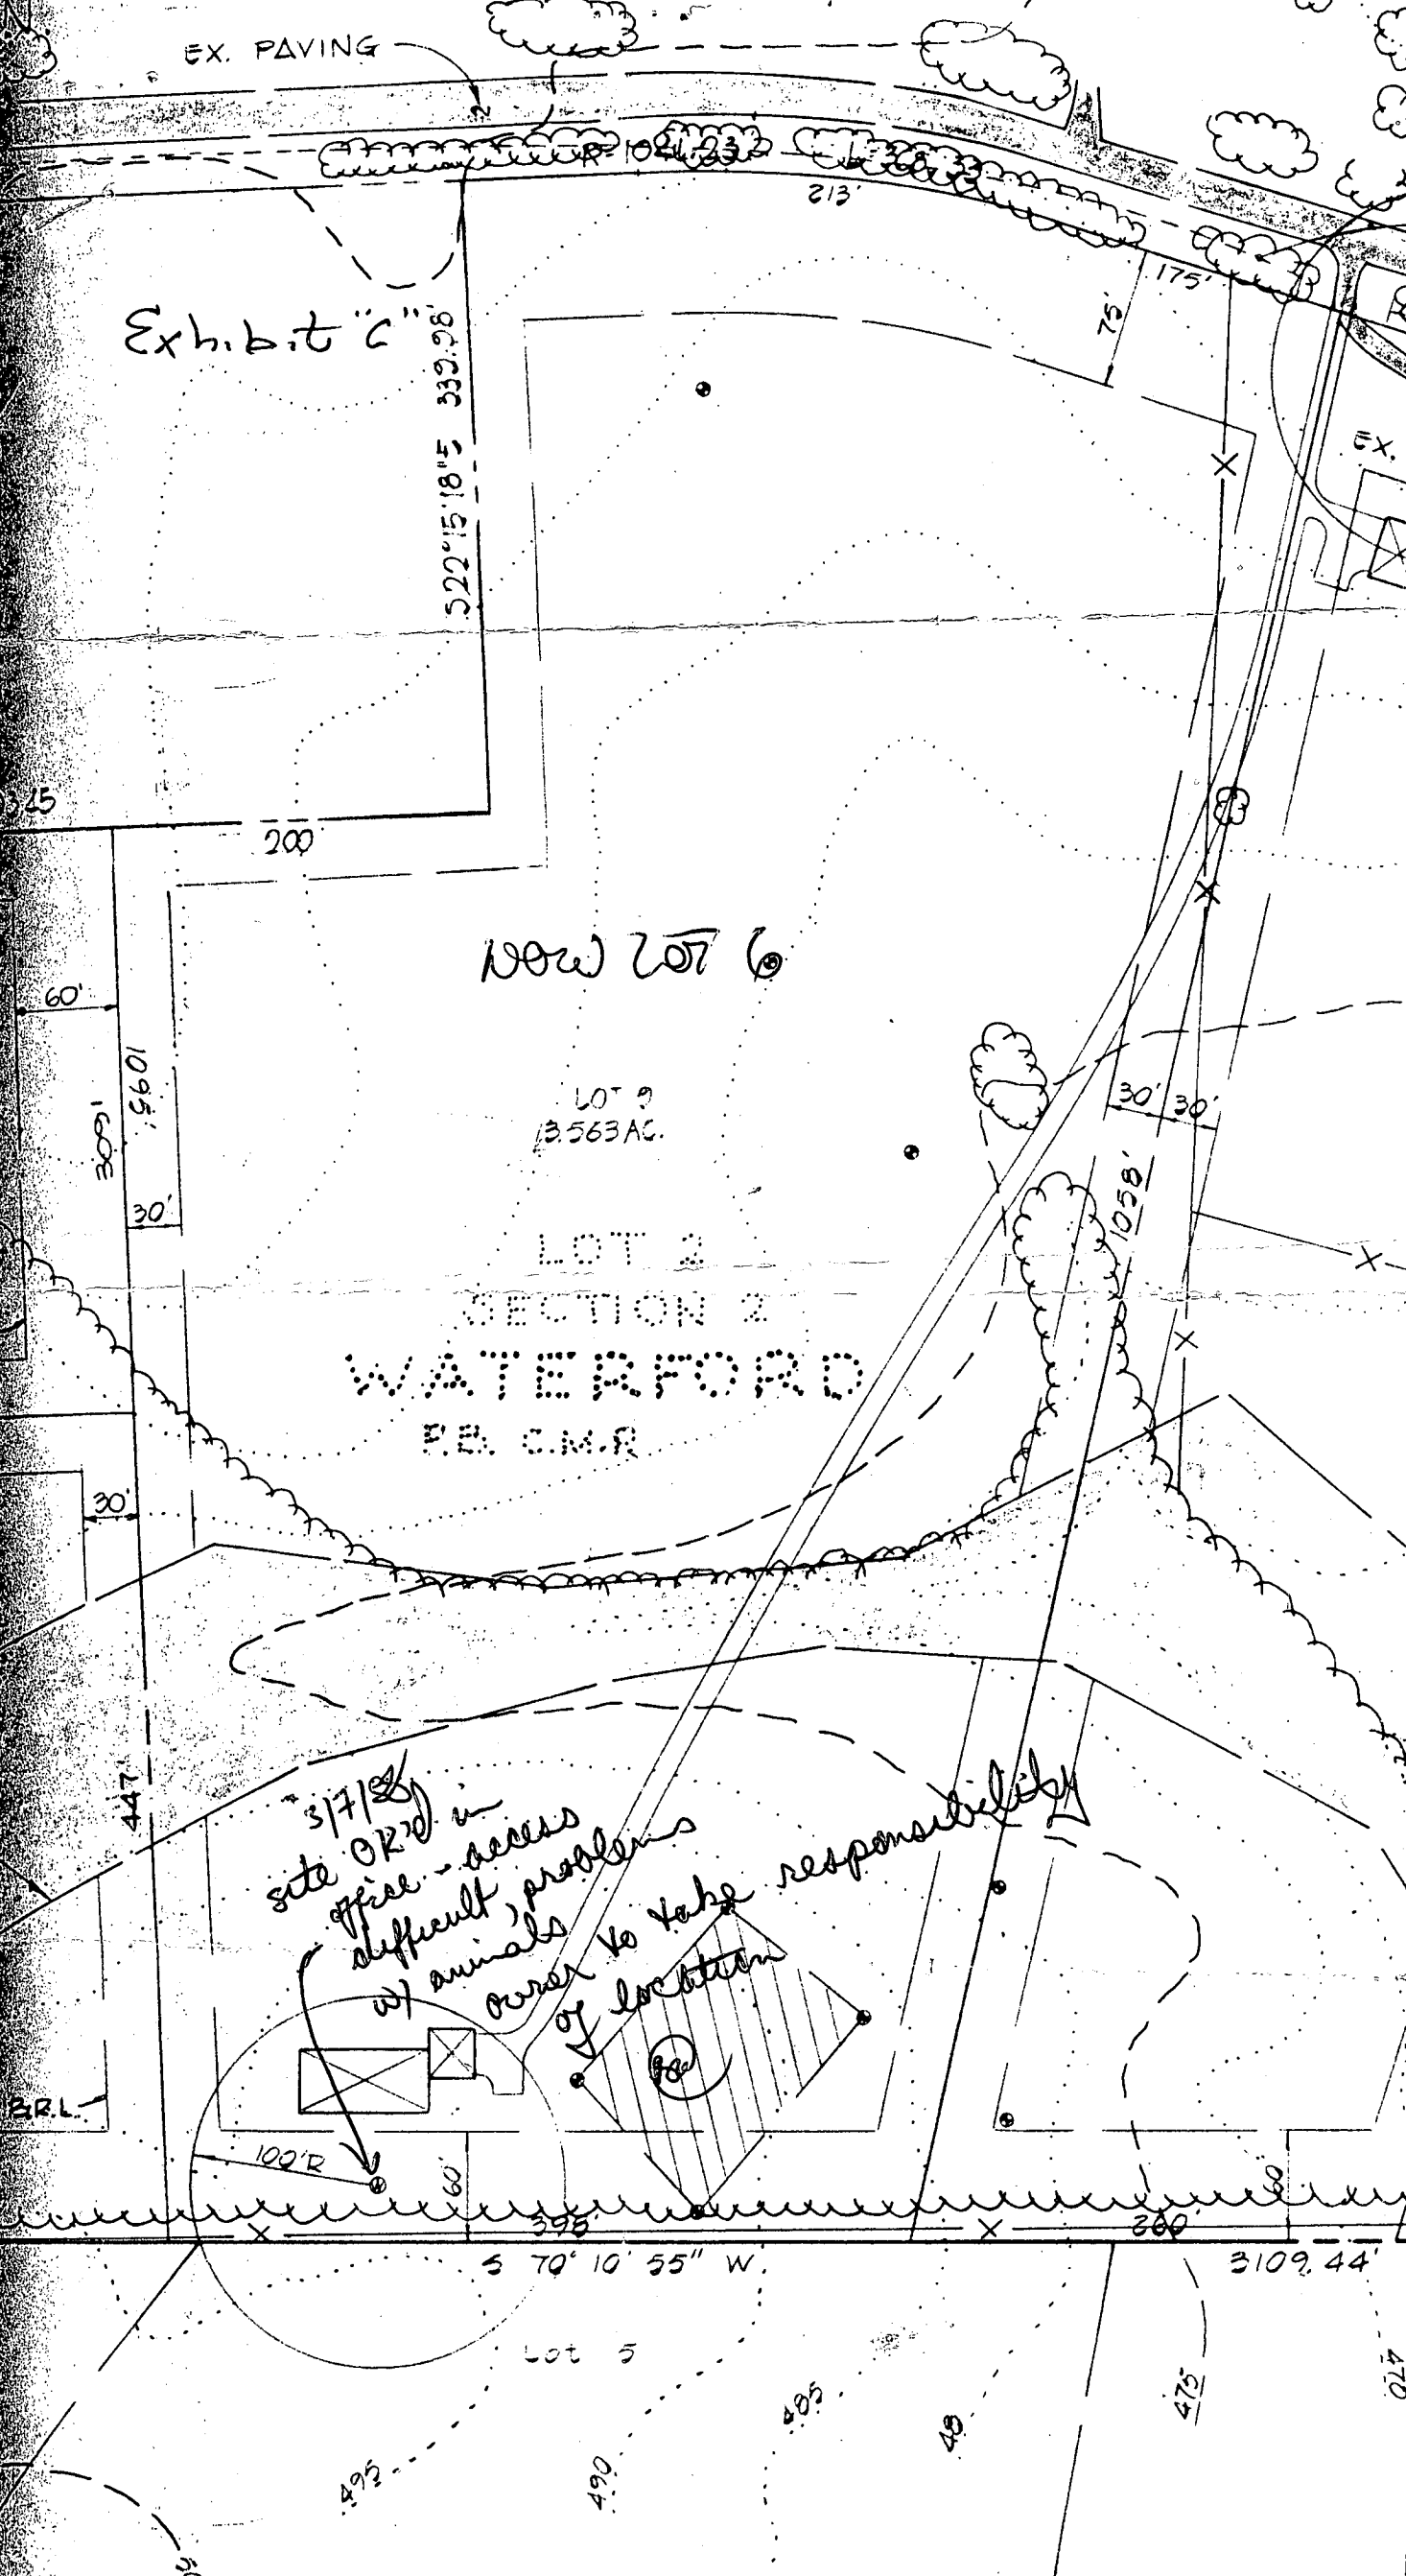 EX. PAVING
213'
175'
75'
Exhibit "C"
S22°15'18"E 339.98'
EX.
200'
NOW LOT 6
60'
1095'
30'
LOT 9
13.563 AC.
30' 30'
1058'
LOT 2
SECTION 2
WATERFORD
P.B. C.M.R.
30'
447'
3/7/86
site OK'd in
office - access
difficult, problems
w/ animals
owner to take responsibility
of location
B.R.L.
100'R
60'
395'
260'
S 70° 10' 55" W.
3109.44'
Lot 5
495
490
485
48
475
470